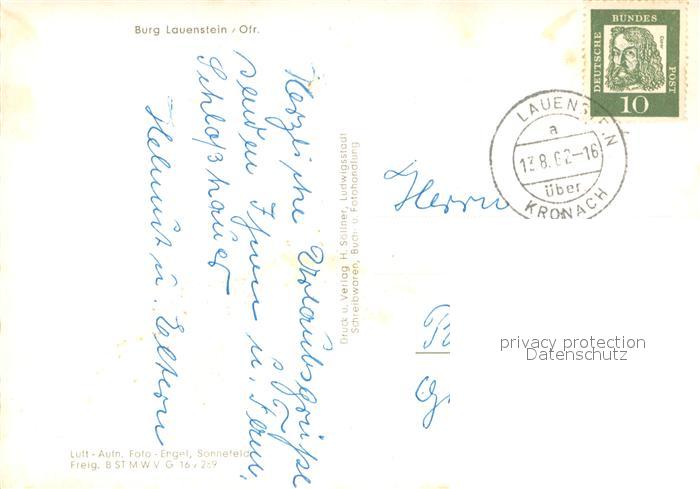 Burg Lauenstein / Ofr.
Herzliche Urlaubsgrüße
senden Ihnen u. Fam.
Schloßhauer
Helmut u. Eltern
Druck u. Verlag H. Söllner, Ludwigsstadt
Schreibwaren, Buch- u. Fotohandlung
Luft-Aufn. Foto-Engel, Sonnefeld
Freig. B ST M W V G 16 / 269
DEUTSCHE
BUNDES
POST
10
LAUENSTEIN
a
13.8.62-16
über
KRONACH
Herrn
privacy protection
Datenschutz